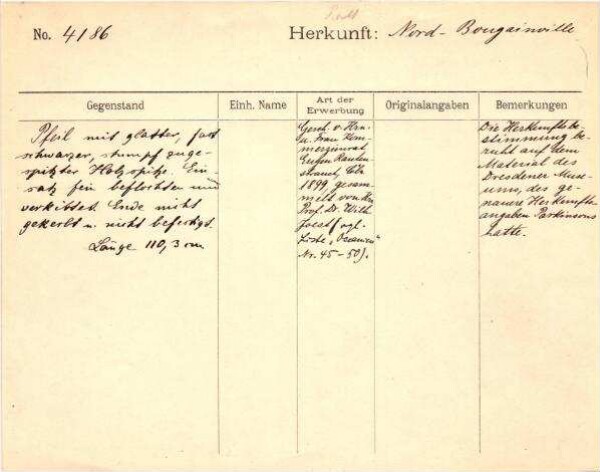 No. 4186
Herkunft: Nord-Bougainville
Gegenstand
Einh. Name
Art der Erwerbung
Originalangaben
Bemerkungen
Pfeil mit glatter, fast
schwarzer, stumpf zuge-
spitzter Holzspitze. Ein-
satz fein beflochten und
verkittet. Ende nicht
gekerbt u. nicht befestigt.
Länge 110,3 cm
Gesch. v. Hrn.
u. Frau Kom-
merzienrat
Eugen Rauten-
strauch, Cöln
1899, gesam-
melt von Hrn.
Prof. Dr. Wilh.
Joest (vgl.
Liste „Oceanien"
Nr. 45-50).
Die Herkunftsbe-
stimmung be-
ruht auf dem
Material des
Dresdener Muse-
ums, das ge-
naue Herkunfts-
angaben Parkinsons
hatte.